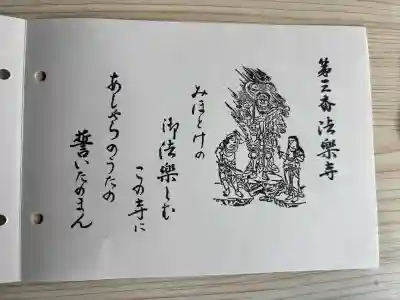 第三番法樂寺
みほとけの
御法樂しむ
この寺に
あじゃらのうたの
誓いたのまん